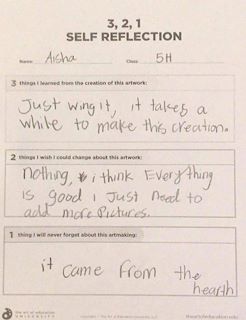 3, 2, 1
SELF REFLECTION
Name: Aisha Class: 5H
3 things I learned from the creation of this artwork:
Just wing it, it takes a
while to make this creation.
2 things I wish I could change about this artwork:
nothing, i think Everything
is good i Just need to
add more Pictures.
1 thing I will never forget about this artmaking:
it came from the
hearth
the art of education
UNIVERSITY
theartofeducation.edu